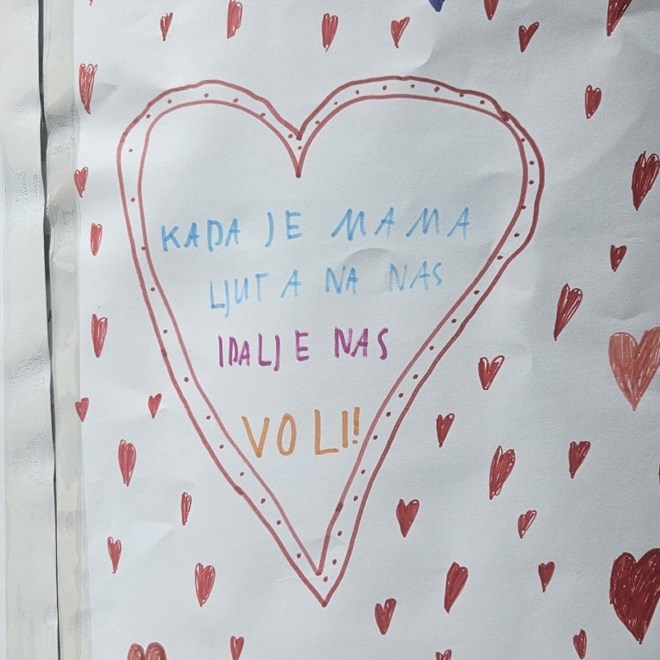 KADA JE MAMA
LJUTA NA NAS
IDALJE NAS
VOLI!